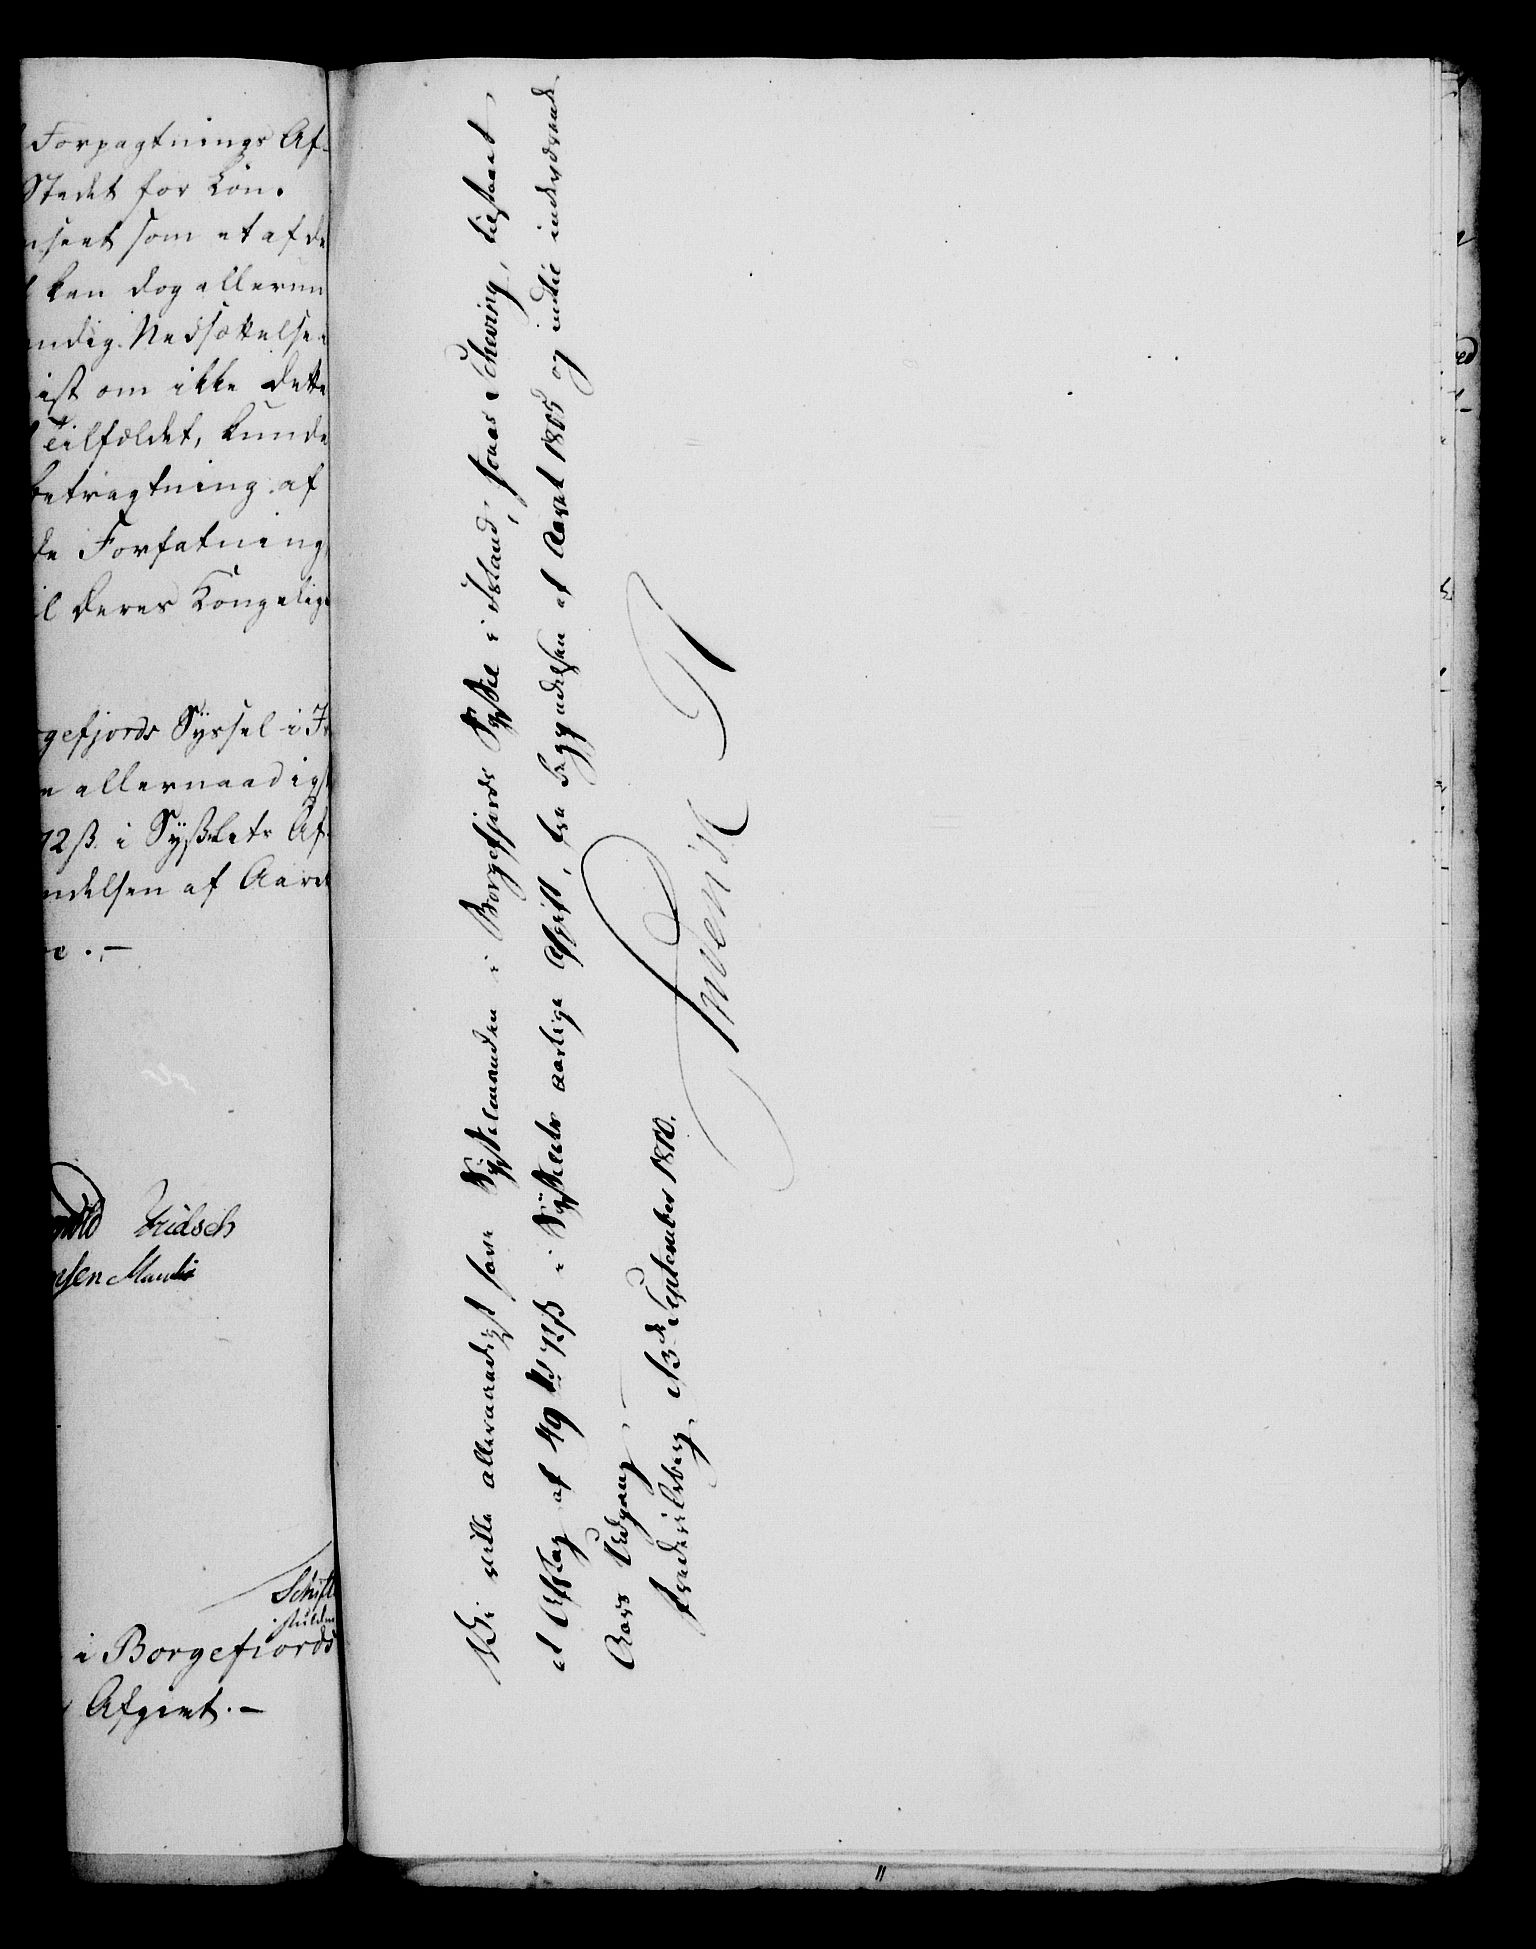 Forpagtnings Af-
Stedet for Løn.
nseet som et af de
kan dog allerun
ndig Nedsættelse
ist om ikke dette
Tilfældet, kunde
betragtning af
Forfatning
il Deres Kongelig
rgefjords Syssel i I
allernaadigst
72 ß. i Sysselets Af-
ndelsen af Aaret
e.–
Fridsch
nsen
i Borgefiords
Afgivt.–
Vi ville allernaadigst have Sysselmanden i Borgefjords Syssel i Island, Jonas Scheving, tilstaaet
et Afslag af 49 rd 72 ß i Sysselets aarlige Afgift, fra Begyndelsen af Aaret 1805 og indtil indeværende
Aars Udgang.–
Frederiksberg, d 3de September 1810.
Frederik R